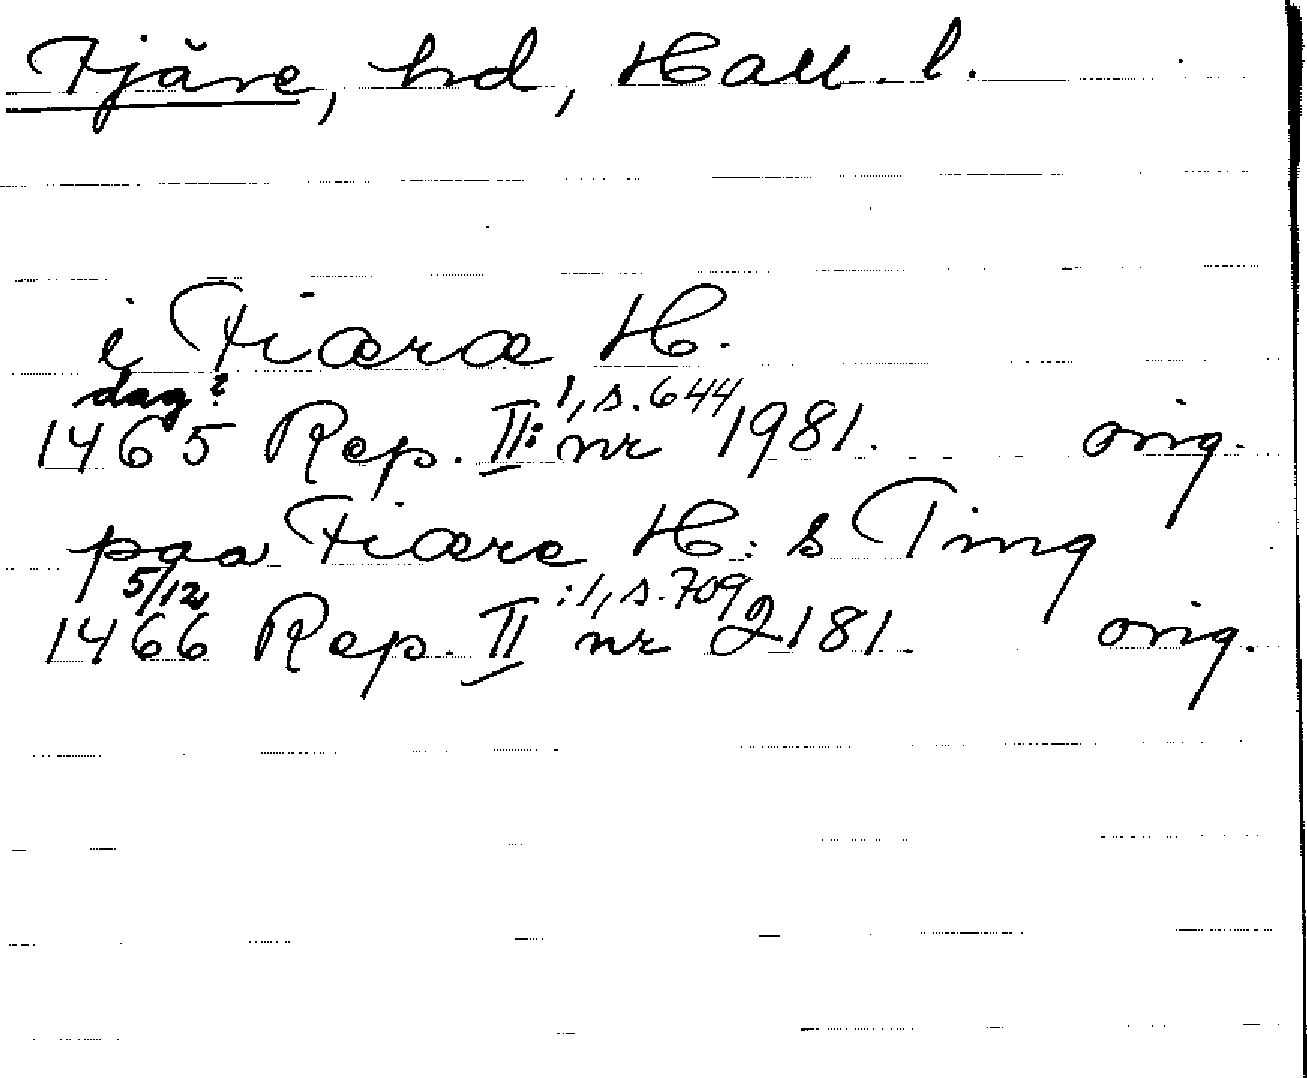 Fjäre, hd, Hall. l.
i Fiæræ H.
dag?
1465 Rep. II:1, s. 644 nr 1981. orig.
paa Fiære H:s Ting
5/12
1466 Rep. II:1, s. 709 nr 2181. orig.